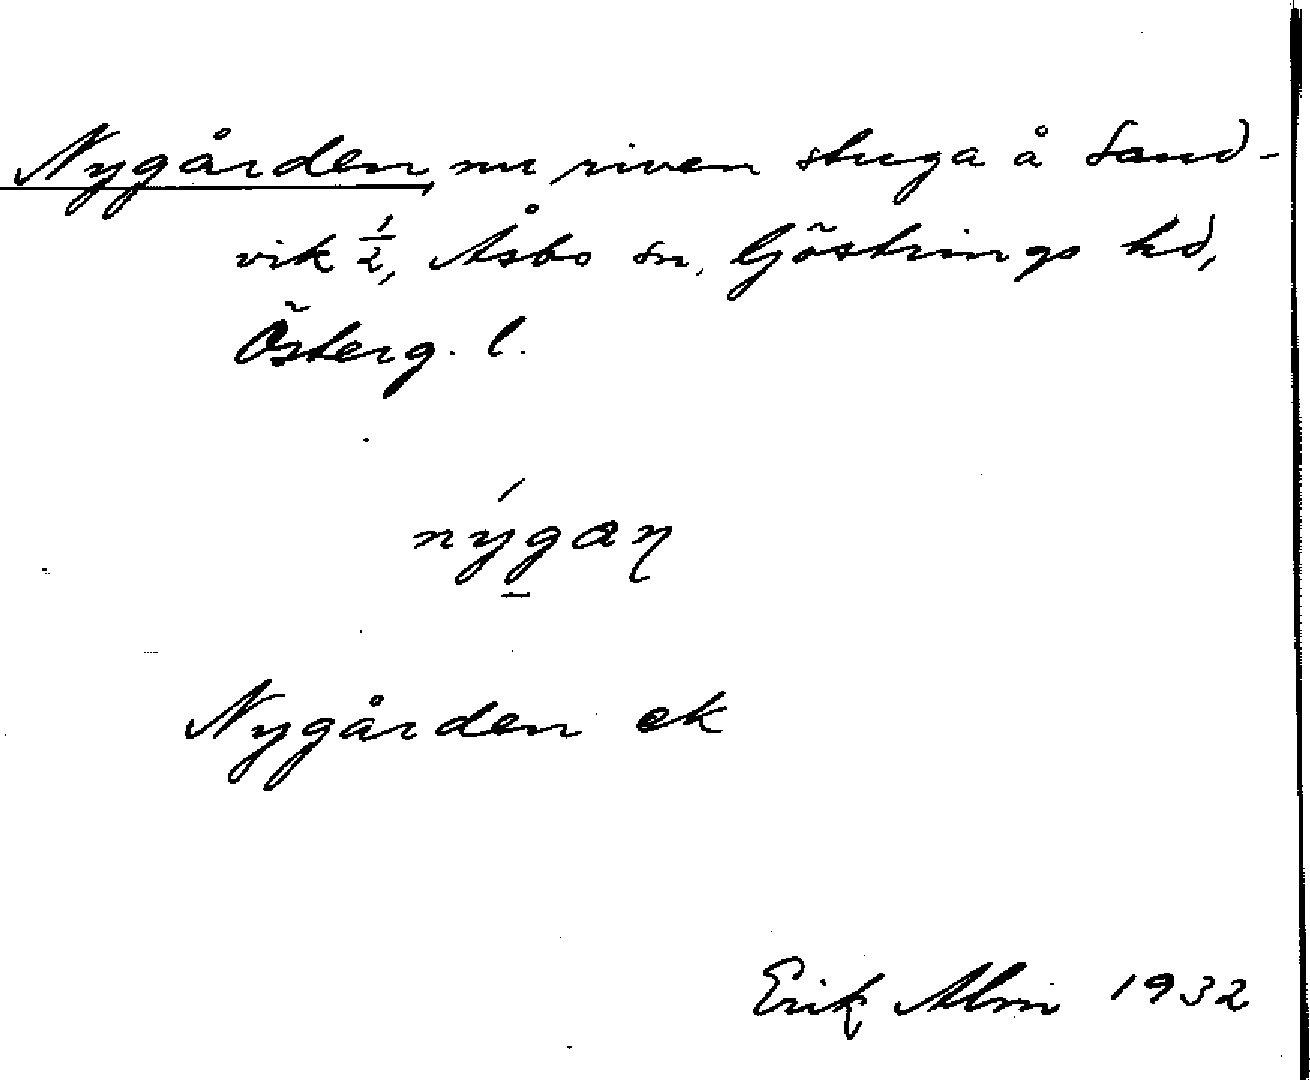 Nygården, nu riven stuga å Sand-
vik 1/2, Åsbo sn, Göstrings hd,
Österg. l.
nýgaɳ
Nygården ek
Erik Alm 1932